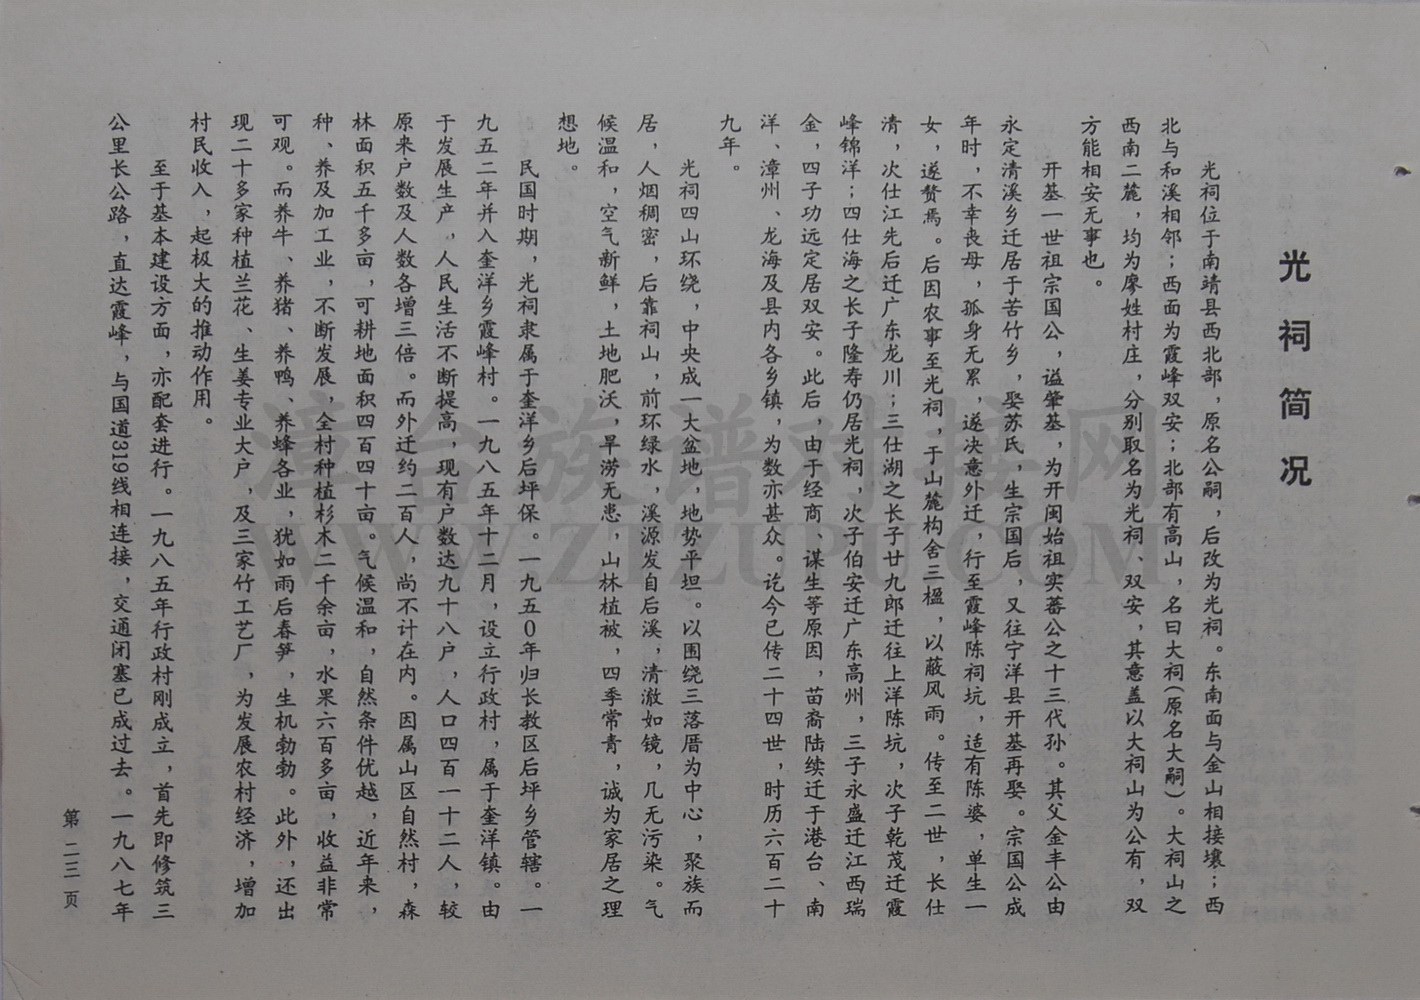 光祠简况
光祠位于南靖县西北部，原名公嗣，后改为光祠。东南面与金山相接壤；西
北与和溪相邻；西面为霞峰双安；北部有高山，名曰大祠（原名大嗣）。大祠山之
西南二麓，均为廖姓村庄，分别取名为光祠、双安，其意盖以大祠山为公有，双
方能相安无事也。
开基一世祖宗国公，谥肇基，为开闽始祖实蕃公之十三代孙。其父金丰公由
永定清溪乡迁居于苦竹乡，娶苏氏，生宗国后，又往宁洋县开基再娶。宗国公成
年时，不幸丧母，孤身无累，遂决意外迁，行至霞峰陈祠坑，适有陈婆，单生一
女，遂赘焉。后因农事至光祠，于山麓构舍三楹，以蔽风雨。传至二世，长仕
清，次仕江先后迁广东龙川；三仕湖之长子廿九郎迁往上洋陈坑，次子乾茂迁霞
峰锦洋；四仕海之长子隆寿仍居光祠，次子伯安迁广东高州，三子永盛迁江西瑞
金，四子功远定居双安。此后，由于经商、谋生等原因，苗裔陆续迁于港台、南
洋、漳州、龙海及县内各乡镇，为数亦甚众。讫今已传二十四世，时历六百二十
九年。
光祠四山环绕，中央成一大盆地，地势平坦。以围绕三落厝为中心，聚族而
居，人烟稠密，后靠祠山，前环绿水，溪源发自后溪，清澈如镜，几无污染。气
候温和，空气新鲜，土地肥沃，旱涝无患，山林植被，四季常青，诚为家居之理
想地。
民国时期，光祠隶属于奎洋乡后坪保。一九五0年归长教区后坪乡管辖。一
九五二年并入奎洋乡霞峰村。一九八五年十二月，设立行政村，属于奎洋镇。由
于发展生产，人民生活不断提高，现有户数达九十八户，人口四百一十二人，较
原来户数及人数各增三倍。而外迁约二百人，尚不计在内。因属山区自然村，森
林面积五千多亩，可耕地面积四百四十亩。气候温和，自然条件优越，近年来，
种、养及加工业，不断发展，全村种植杉木二千余亩，水果六百多亩，收益非常
可观。而养牛、养猪、养鸭、养蜂各业，犹如雨后春笋，生机勃勃。此外，还出
现二十多家种植兰花、生姜专业大户，及三家竹工艺厂，为发展农村经济，增加
村民收入，起极大的推动作用。
至于基本建设方面，亦配套进行。一九八五年行政村刚成立，首先即修筑三
公里长公路，直达霞峰，与国道319线相连接，交通闭塞已成过去。一九八七年
第二三页
漳台族谱对接网
WWW.ZTZUPU.COM